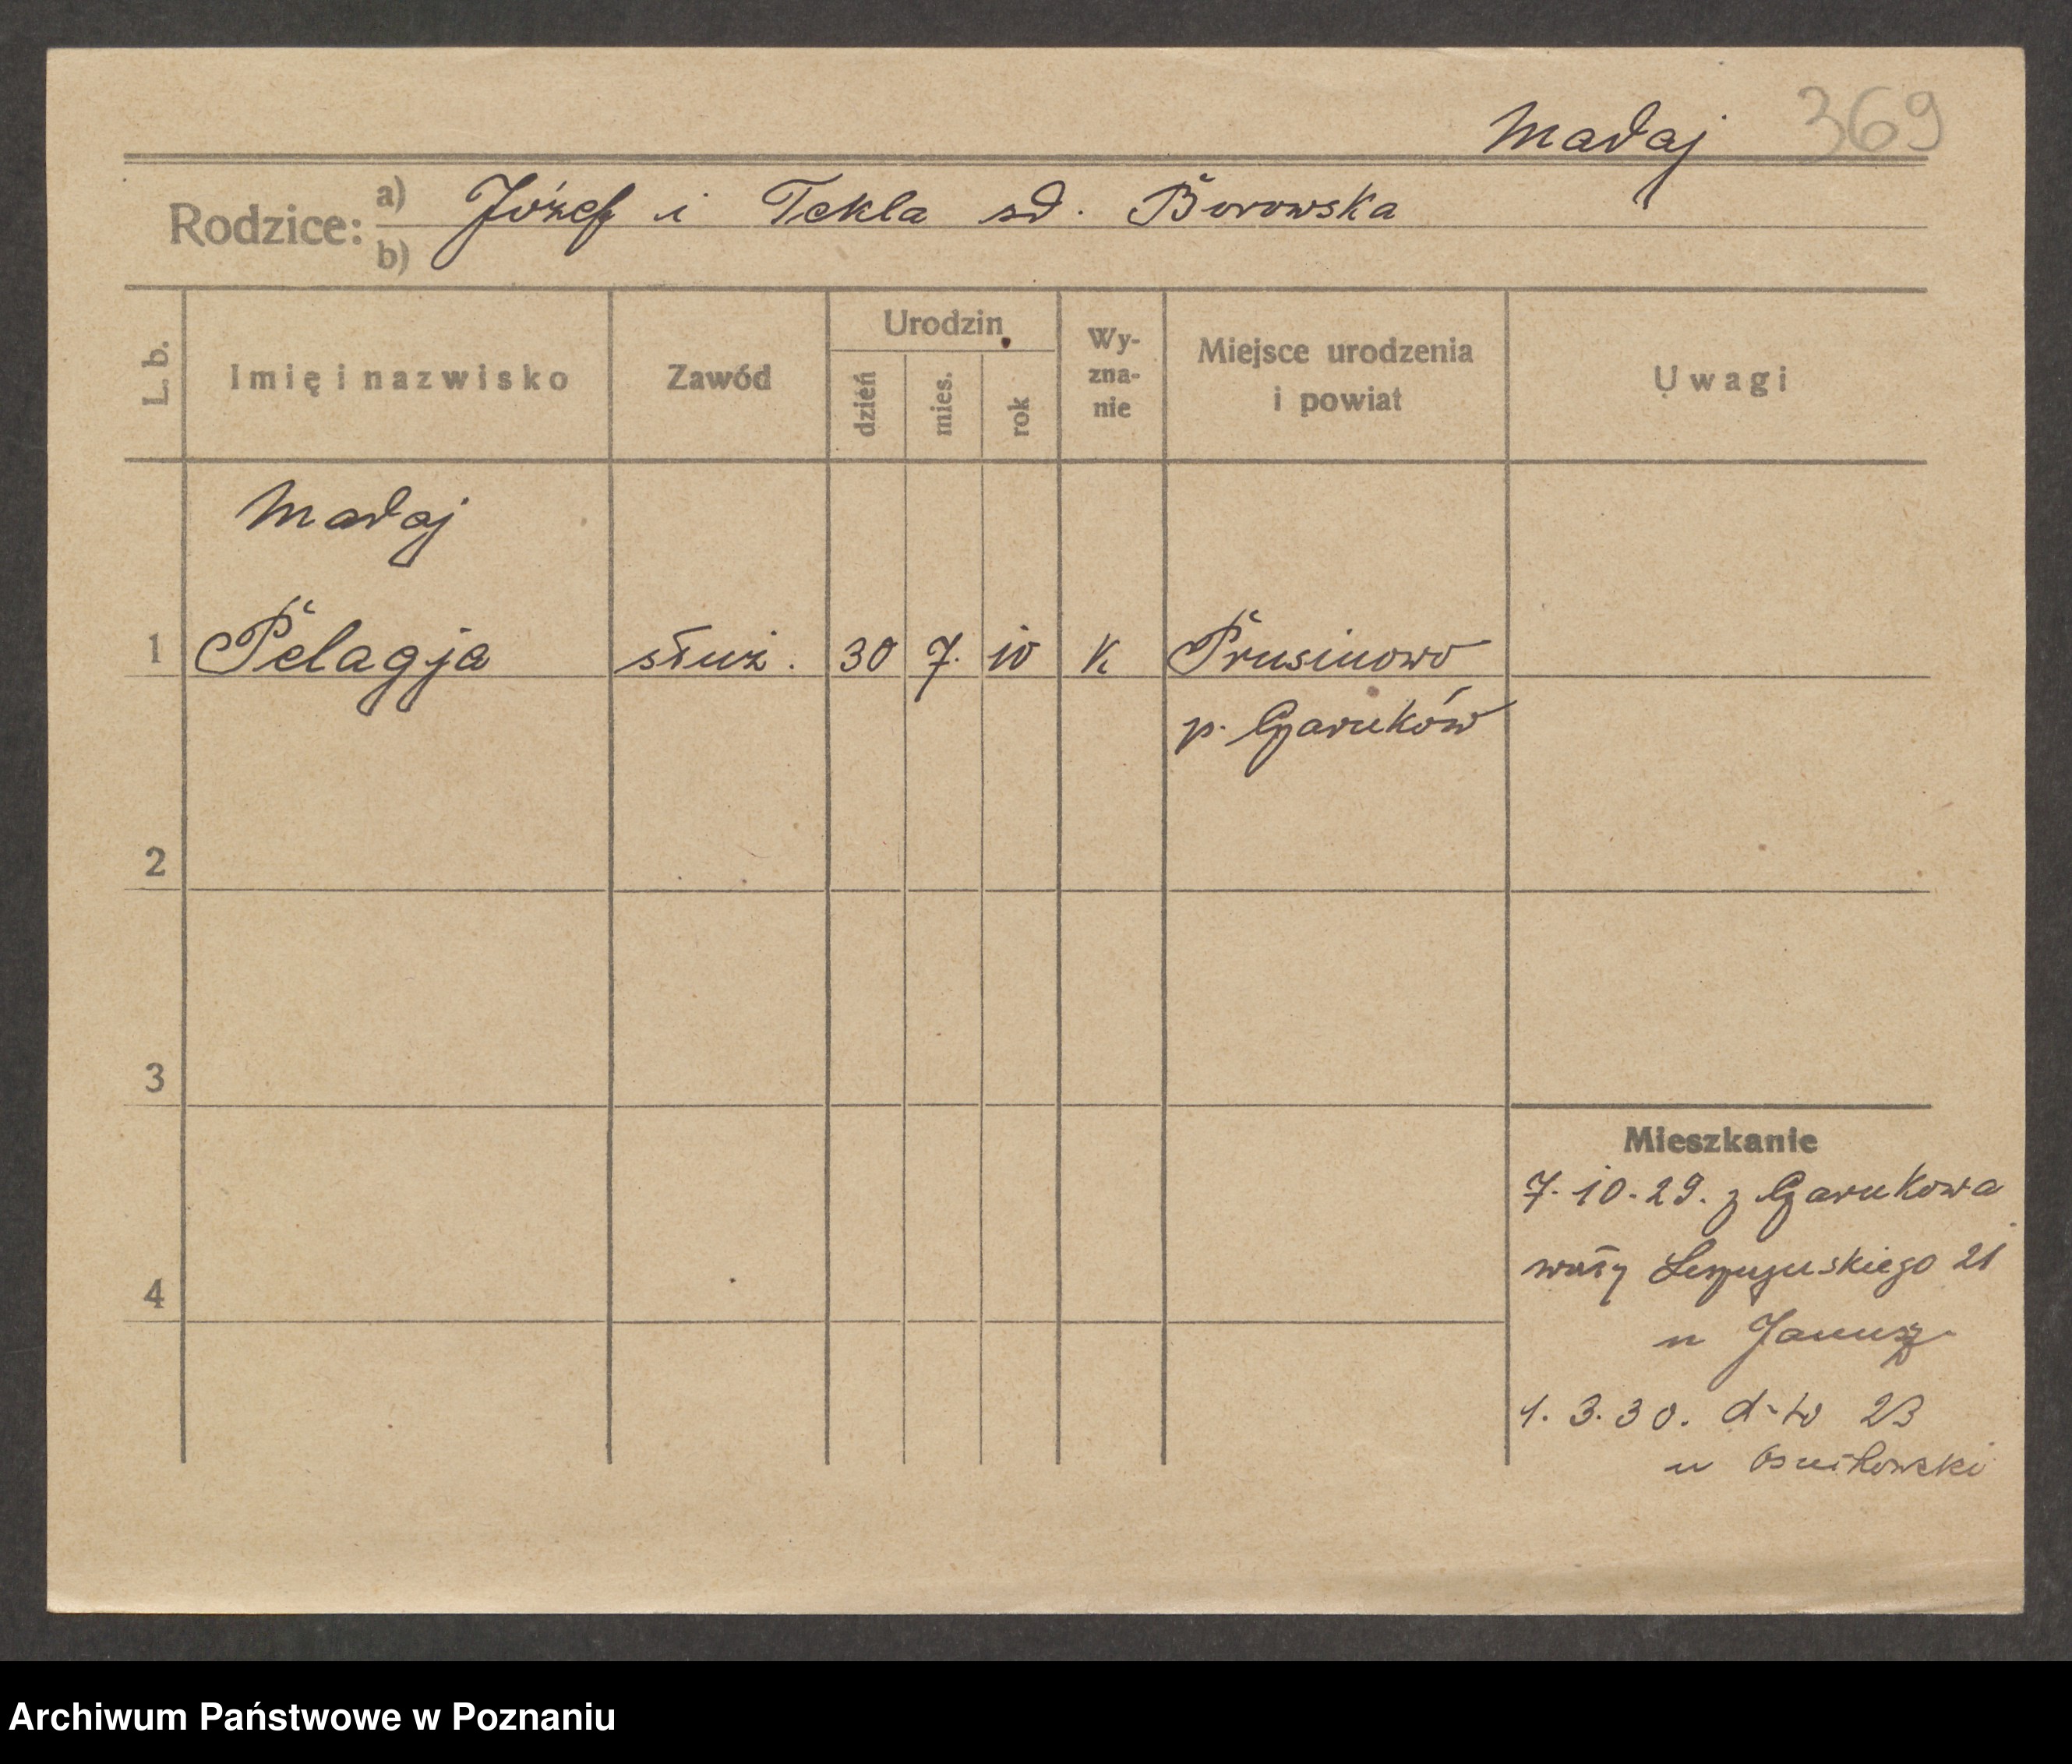 Madaj 369
Rodzice: a) Józef i Tekla sd. Borowska
b)
L. b.
Imię i nazwisko
Zawód
Urodzin
dzień
mies.
rok
Wy-
zna-
nie
Miejsce urodzenia
i powiat
Uwagi
Madaj
1 Pelagja służ. 30 7. 10 K Prusinowo
p. Czarnków
2
3
4
Mieszkanie
7.10.29. z Czarnkowa
wały Leszczyńskiego 21
u Janusz
1.3.30. d-to 23
u
Archiwum Państwowe w Poznaniu